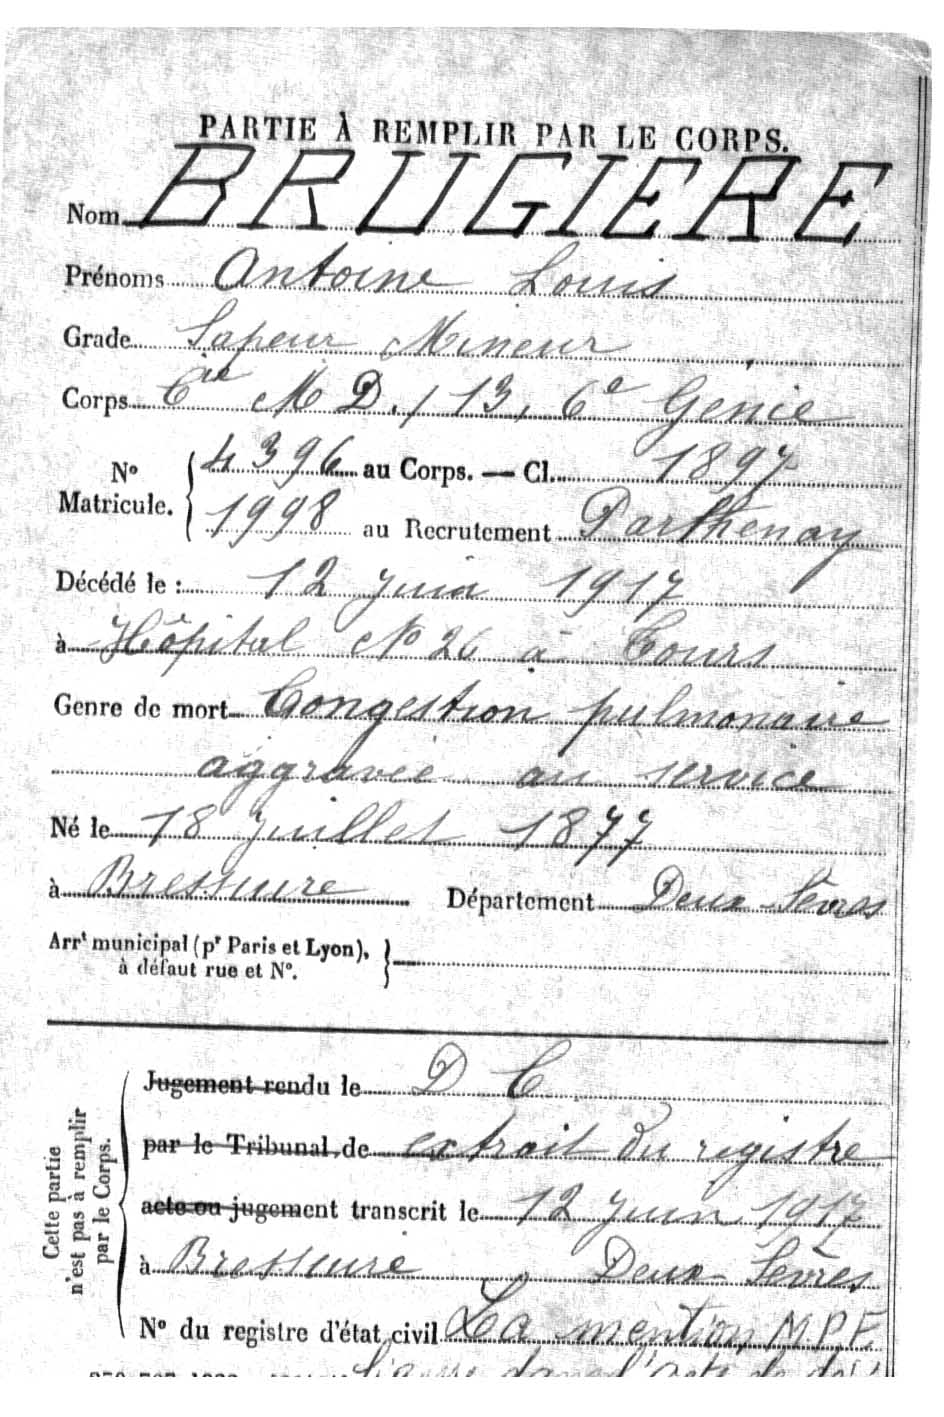 PARTIE À REMPLIR PAR LE CORPS.
Nom BRUGIERE
Prénoms Antoine Louis
Grade Sapeur Mineur
Corps Cie M D. / 13, 6e Génie
No Matricule. { 4396 au Corps. — Cl. 1897
1998 au Recrutement Parthenay
Décédé le : 12 juin 1917
à Hôpital No 26 à Tours
Genre de mort Congestion pulmonaire
aggravée au service
Né le 18 Juillet 1877
à Bressuire Département Deux-Sèvres
Arrt municipal (pr Paris et Lyon),
à défaut rue et No.
Cette partie n'est pas à remplir par le Corps.
Jugement rendu le D C
par le Tribunal de extrait du registre
acte ou jugement transcrit le 12 Juin 1917
à Bressuire Deux-Sèvres
No du registre d'état civil La mention M.P.F.
dans l'acte de